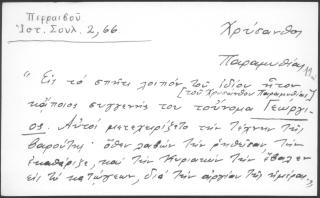 Περραιβοῦ
Ἱστ. Σουλ. 2, 66
Χρύσανθοι
Παραμυθίαι
"Εἰς τὸ σπήτι λοιπὸν τοῦ ἰδίου ἦτον
[τοῦ Χρυσάνθου Παραμυθίας]
κάποιος συγγενής του τοὔνομα Γεώργι-
ος. Αὐτὸς μετεχειρίζετο τὴν τέχνην τῆς
βαρούτης· ὅθεν λαβὼν τὴν ῥηθεῖσαν, τὴν
ἐκαθάριζε, καὶ τὴν Κυριακὴν τὴν ἔβαλεν
εἰς τὸ κατώγεων, διὰ τὴν ἀργίαν τῆς ἡμέρας"